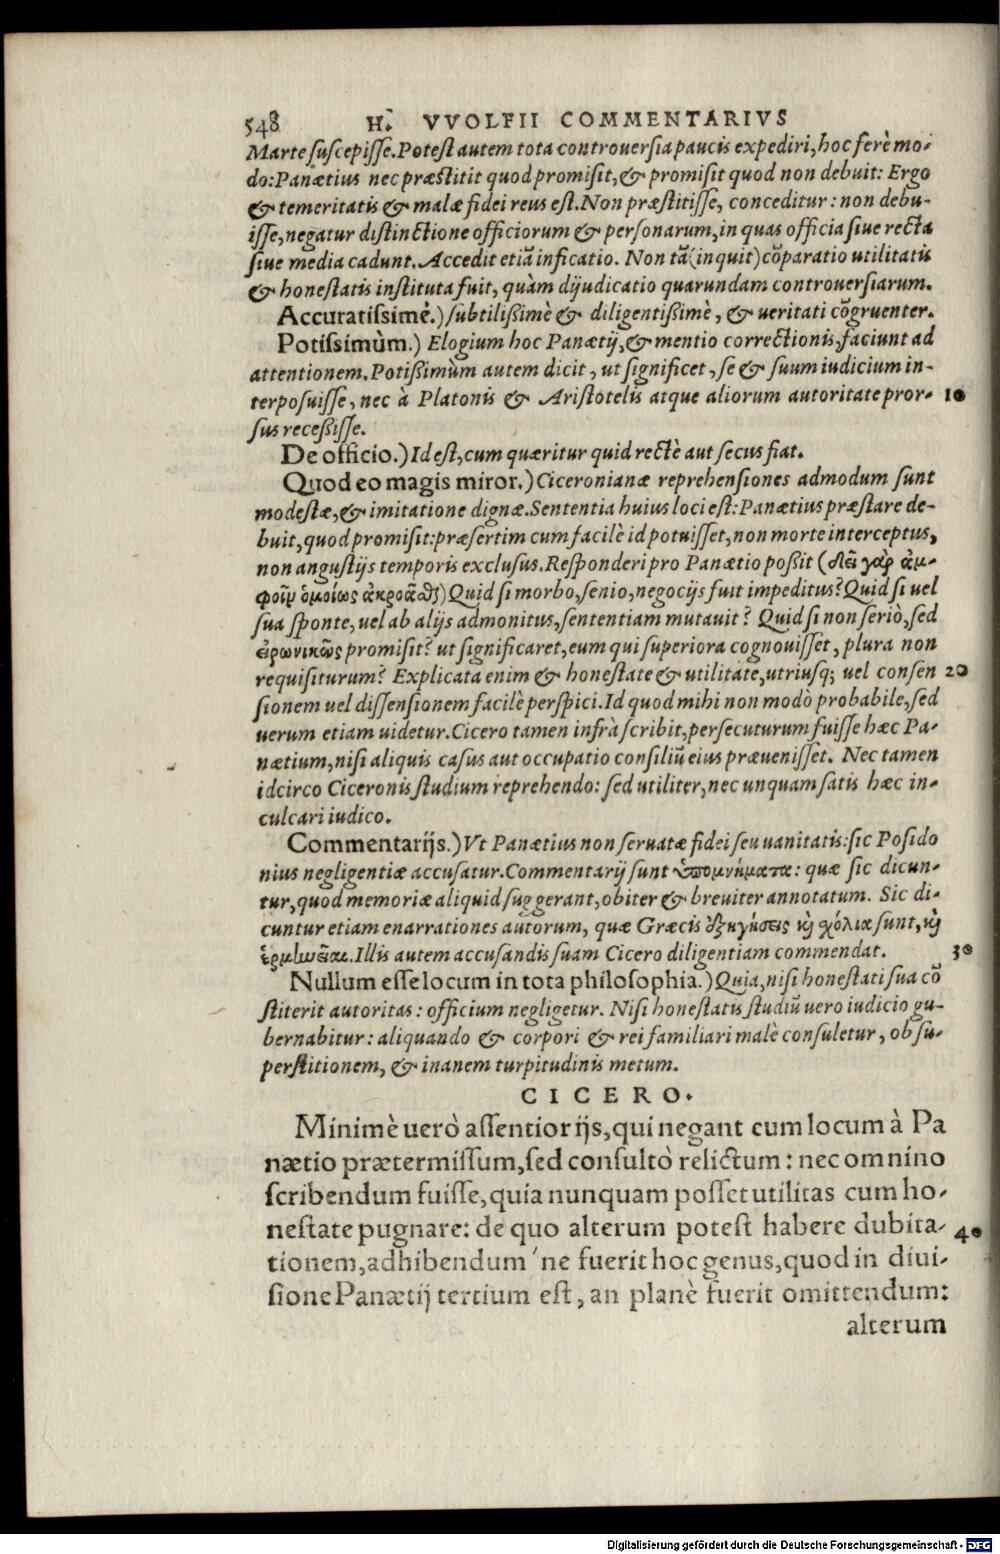 548 H. VVOLFII COMMENTARIVS
Marte suscepisse. Potest autem tota controuersia paucis expediri, hoc ferè mo-
do: Panætius nec præstitit quod promisit, & promisit quod non debuit: Ergo
& temeritatis & malæ fidei reus est. Non præstitisse, conceditur: non debu-
isse, negatur distinctione officiorum & personarum, in quas officia siue recta
siue media cadunt. Accedit etiã inficatio. Non tã (inquit) cõparatio utilitatis
& honestatis instituta fuit, quàm dijudicatio quarundam controuersiarum.
Accuratissimè.) subtilißimè & diligentißimè, & ueritati cõgruenter.
Potissimùm.) Elogium hoc Panætij, & mentio correctionis, faciunt ad
attentionem. Potißimùm autem dicit, ut significet, se & suum iudicium in-
terposuisse, nec à Platonis & Aristotelis atque aliorum autoritate pror- 10
sus receßisse.
De officio.) Id est, cum quæritur quid rectè aut secus fiat.
Quod eo magis miror.) Ciceronianæ reprehensiones admodum sunt
modestæ, & imitatione dignæ. Sententia huius loci est: Panætius præstare de-
buit, quod promisit: præsertim cum facilè id potuisset, non morte interceptus,
non angustijs temporis exclusus. Responderi pro Panætio poßit (δεῖ γὰρ ἀμ-
φοῖν ὁμοίως ἀκροᾶσθαι) Quid si morbo, senio, negocijs fuit impeditus? Quid si uel
sua sponte, uel ab alijs admonitus, sententiam mutauit? Quid si non seriò, sed
εἰρωνικῶς promisit? ut significaret, eum qui superiora cognouisset, plura non
requisiturum? Explicata enim & honestate & utilitate, utriusq; uel consen 20
sionem uel dissensionem facilè perspici. Id quod mihi non modò probabile, sed
uerum etiam uidetur. Cicero tamen infrà scribit, persecuturum fuisse hæc Pa-
nætium, nisi aliquis casus aut occupatio consiliũ eius præuenisset. Nec tamen
idcirco Ciceronis studium reprehendo: sed utiliter, nec unquam satis hæc in-
culcari iudico.
Commentarijs.) Vt Panætius non seruatæ fidei seu uanitatis: sic Posido
nius negligentiæ accusatur. Commentarij sunt ὑπομνήματα: quæ sic dicun-
tur, quod memoriæ aliquid suggerant, obiter & breuiter annotatum. Sic di-
cuntur etiam enarrationes autorum, quæ Græcis ἐξηγήσεις καὶ σχόλια sunt, καὶ
ἑρμηνεῖαι. Illis autem accusandis suam Cicero diligentiam commendat. 30
Nullum esse locum in tota philosophia.) Quia, nisi honestati sua cõ
stiterit autoritas: officium negligetur. Nisi honestatis studiũ uero iudicio gu-
bernabitur: aliquando & corpori & rei familiari malè consuletur, ob su-
perstitionem, & inanem turpitudinis metum.
CICERO.
Minimè uerò assentior ijs, qui negant eum locum à Pa
nætio prætermissum, sed consultò relictum: nec omnino
scribendum fuisse, quia nunquam posset utilitas cum ho-
nestate pugnare: de quo alterum potest habere dubita- 40
tionem, adhibendum'ne fuerit hoc genus, quod in diui-
sione Panætij tertium est, an planè fuerit omittendum:
alterum
Digitalisierung gefördert durch die Deutsche Forschungsgemeinschaft - DFG